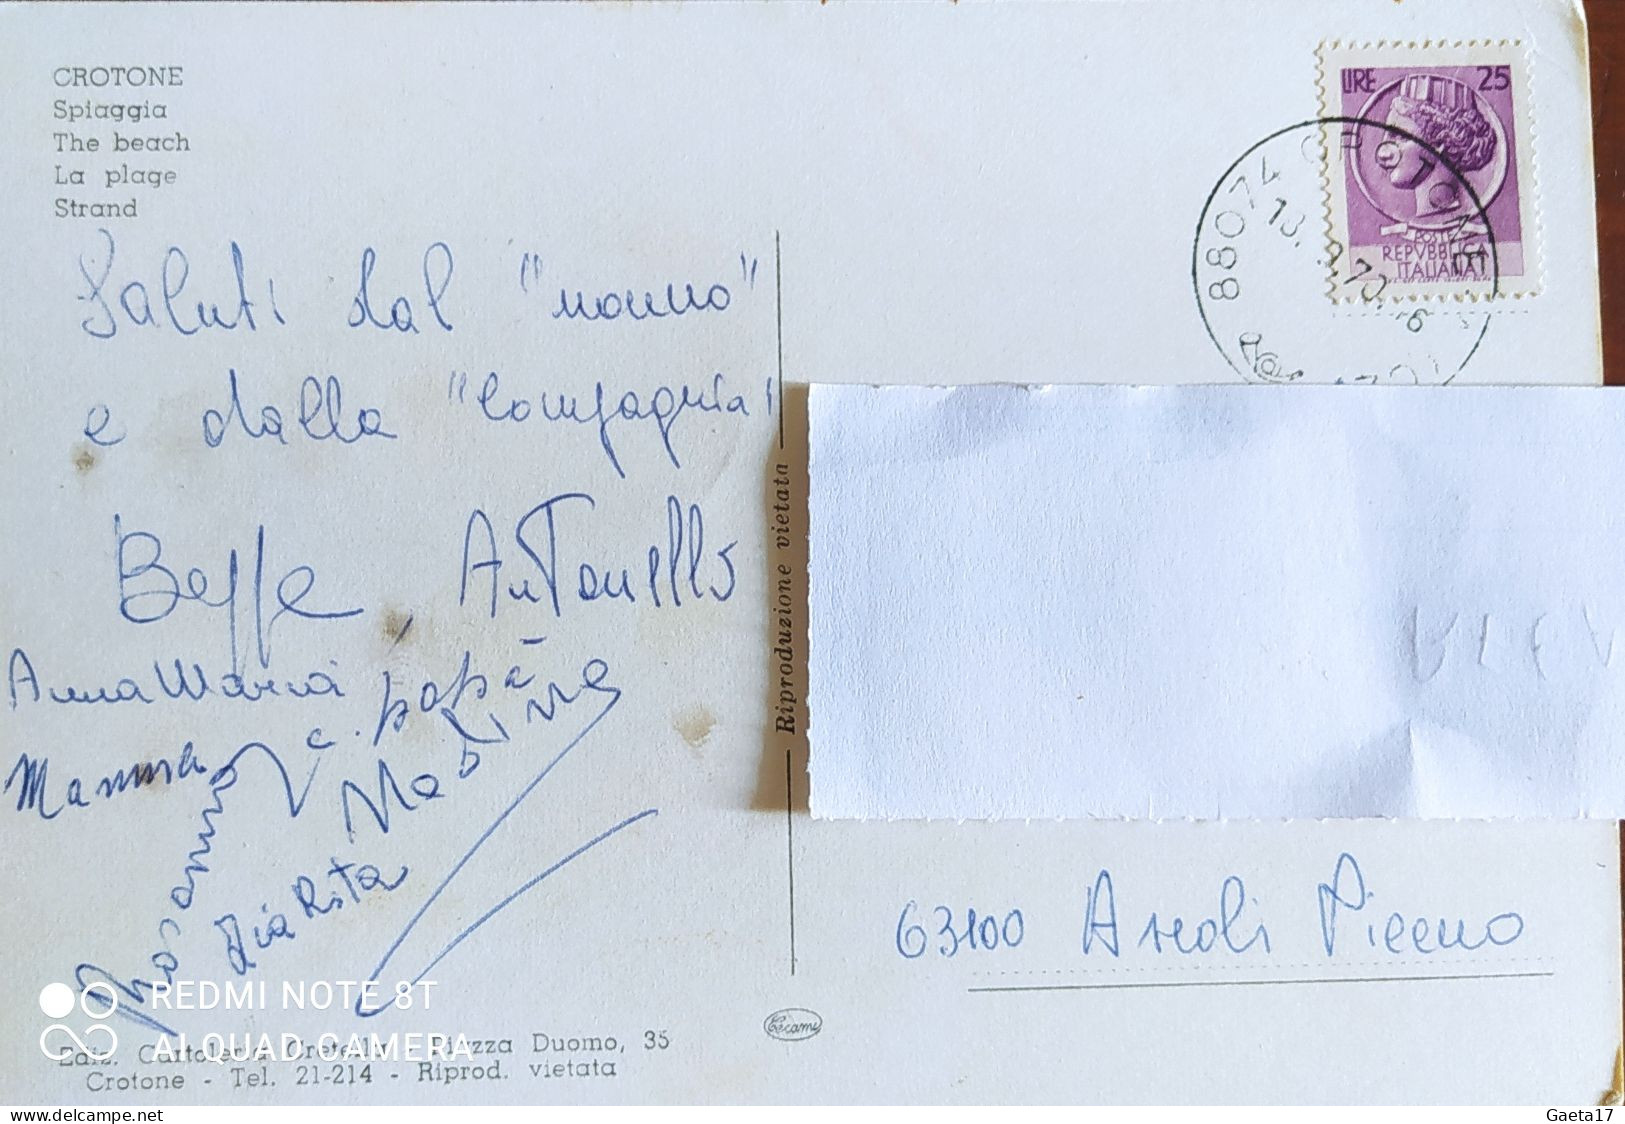 CROTONE
Spiaggia
The beach
La plage
Strand
LIRE 25
POSTE
REPVBBLICA
ITALIANA
88074 CROTONE
13. 9.70.16
Saluti dal "nonno"
e dalla "Compagnia"
Beppe, Antonello
Anna Maria
Mamma e papà
Rosanna
Zia Rita
Riproduzione vietata
63100 Ascoli Piceno
Cecami
Ediz. Cartoleria - Piazza Duomo, 35
Crotone - Tel. 21-214 - Riprod. vietata
REDMI NOTE 8T
AI QUAD CAMERA
www.delcampe.net
Gaeta17